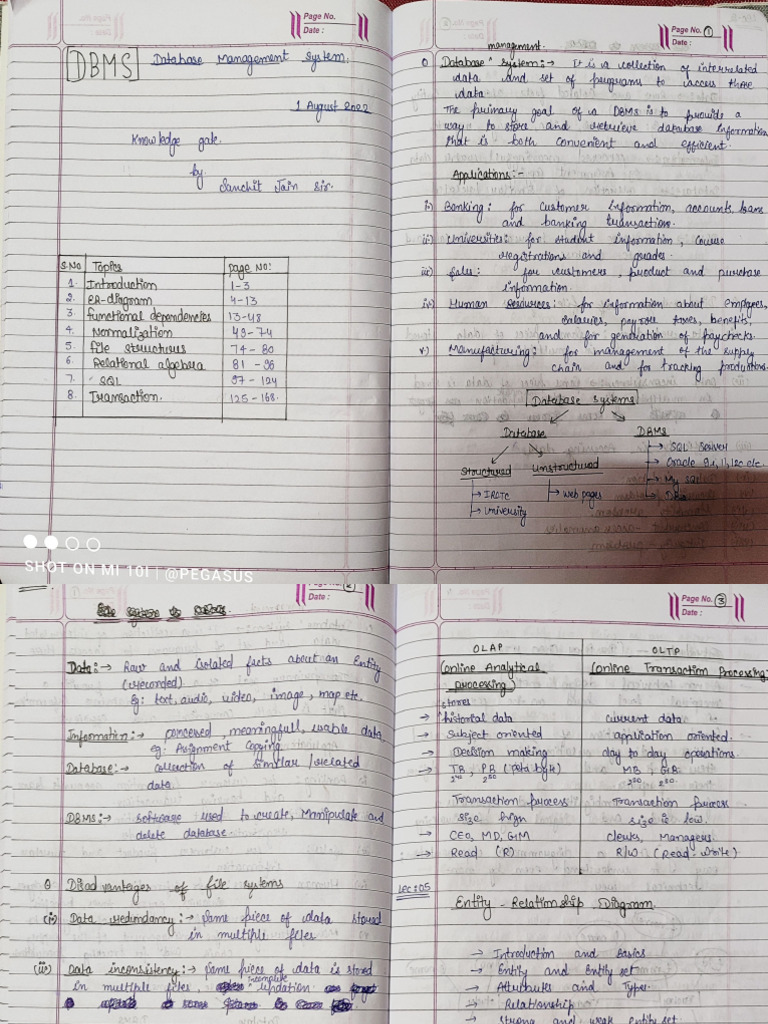 Page No.
Date :
DBMS Database Management System.
1 August 2022
Knowledge gate.
by
Sanchit Jain Sir.
S.NO Topics page NO:
1. Introduction 1-3
2. ER-diagram 4-13
3. functional dependencies 13-48
4. Normalization 49-74
5. file structures 74-80
6. Relational algebra 81-96
7. SQL 97-124
8. Transaction. 125-168.
SHOT ON MI 10I | @PEGASUS
Page No. 1
Date :
management.
Database ^ System:→ It is a collection of interrelated
data and set of programs to access those
data.
The primary goal of a DBMS is to provide a
way to store and retrieve database information
that is both convenient and efficient.
Applications:-
i) Banking: for customer information, accounts, loans
and banking transactions.
ii) Universities: for student information, course
registrations and grades.
iii) Sales: for customers, product and purchase
information.
iv) Human Resources: for information about employees,
salaries, payroll taxes, benefits,
and for generation of paychecks.
v) Manufacturing: for management of the supply
chain and for tracking productions.
Database Systems
Database DBMS
Structured Unstructured
→ IRCTC
→ University
→ Web pages
→ SQL Server
→ Oracle 9i, 11, 12c etc.
→ My SQL
→ DB2
Page No. 2
Date :
Data:→ Raw and isolated facts about an Entity
(recorded)
eg: text, audio, video, image, map etc.
Information:→ processed, meaningfull, usable data
eg: Assignment Copying
Database:→ collection of similar/related
data.
DBMS:→ software used to create, Manipulate and
delete database.
Disadvantages of file systems
(i) Data redundancy:→ Same piece of data stored
in multiple files
(ii) Data inconsistency:→ Same piece of data is stored
in multiple files, incomplete updation.
Page No. 3
Date :
OLAP OLTP
(Online Analytical (Online Transaction Processing)
processing)
stores
→ ^historical data current data
→ Subject oriented application oriented.
→ Decision making day to day operations.
→ TB, PB (Peta byte) MB, GB
2^40 2^50 2^20 2^30
Transaction process Transaction process
size high size is low.
→ CEO, MD, GM clerks, Managers.
→ Read (R) R/W (Read-write)
Lec:05
Entity-Relationship Diagram.
→ Introduction and basics
→ Entity and Entity set
→ Attributes and Types
→ Relationship
→ Strong and weak entity set